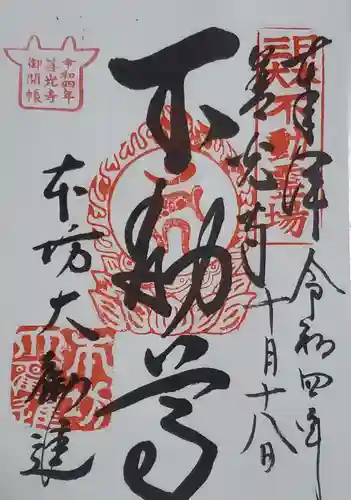 奉拝
令和四年
十月十八日
善光寺
不動尊
本坊大勧進
令和四年
善光寺
御開帳
不動霊場